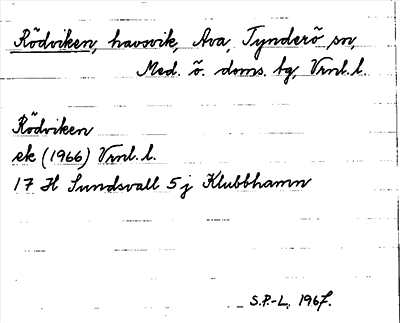 Rödviken, havsvik, Ava, Tynderö sn,
Med. ö. doms. tg, Vrnl. l.
Rödviken
ek (1966) Vrnl. l.
17 H Sundsvall 5 j Klubbhamn
S.P.-L. 1967.